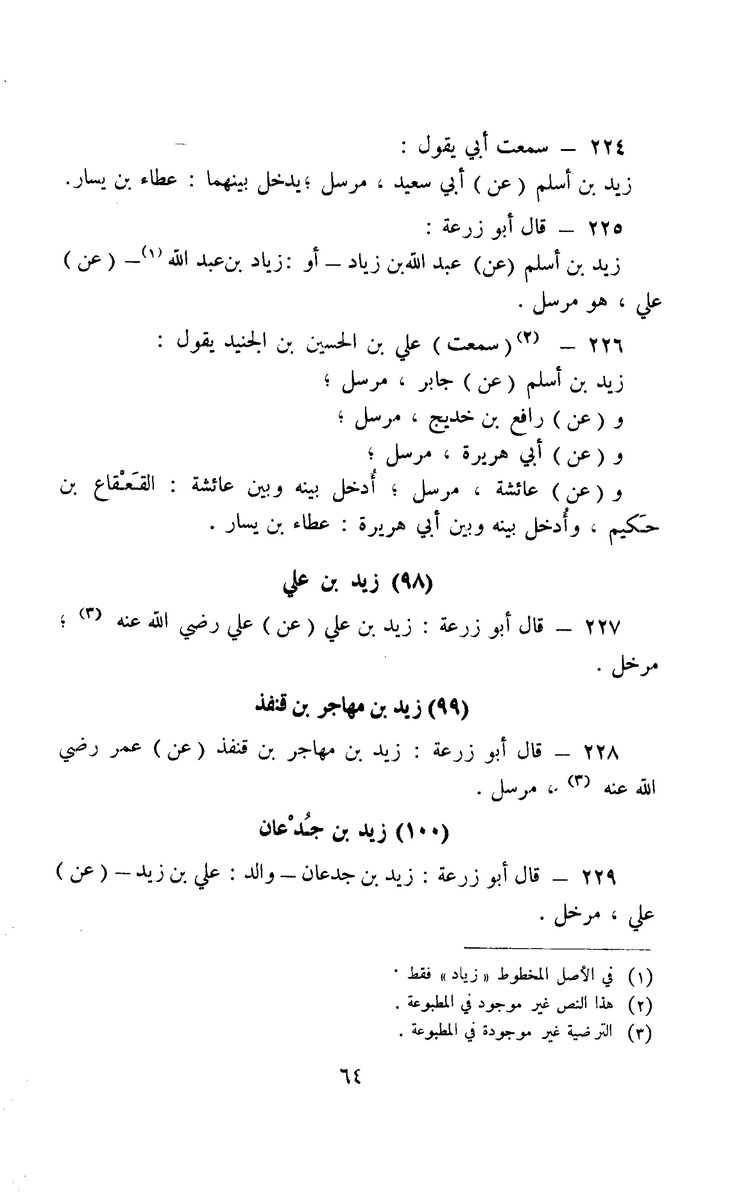 ٢٢٤ – سمعت أبي يقول :
زيد بن أسلم ( عن ) أبي سعيد ، مرسل ؛ يدخل بينهما : عطاء بن يسار.
٢٢٥ – قال أبو زرعة :
زيد بن أسلم (عن) عبد الله بن زياد – أو : زياد بن عبد الله (١) – ( عن )
علي ، هو مرسل .
٢٢٦ – (٢) ( سمعت ) علي بن الحسين بن الجنيد يقول :
زيد بن أسلم ( عن ) جابر ، مرسل ؛
و ( عن ) رافع بن خديج ، مرسل ؛
و ( عن ) أبي هريرة ، مرسل ؛
و ( عن ) عائشة ، مرسل ؛ أُدخل بينه وبين عائشة : القَعْقاع بن
حَكيم ، وأُدخل بينه وبين أبي هريرة : عطاء بن يسار .
(٩٨) زيد بن علي
٢٢٧ – قال أبو زرعة : زيد بن علي ( عن ) علي رضي الله عنه (٣) ؛
مرخل .
(٩٩) زيد بن مهاجر بن قنفذ
٢٢٨ – قال أبو زرعة : زيد بن مهاجر بن قنفذ ( عن ) عمر رضي
الله عنه (٣) ، مرسل .
(١٠٠) زيد بن جُدْعان
٢٢٩ – قال أبو زرعة : زيد بن جدعان – والد : علي بن زيد – ( عن )
علي ، مرخل .
(١) في الأصل المخطوط « زياد » فقط .
(٢) هذا النص غير موجود في المطبوعة .
(٣) الترضية غير موجودة في المطبوعة .
٦٤